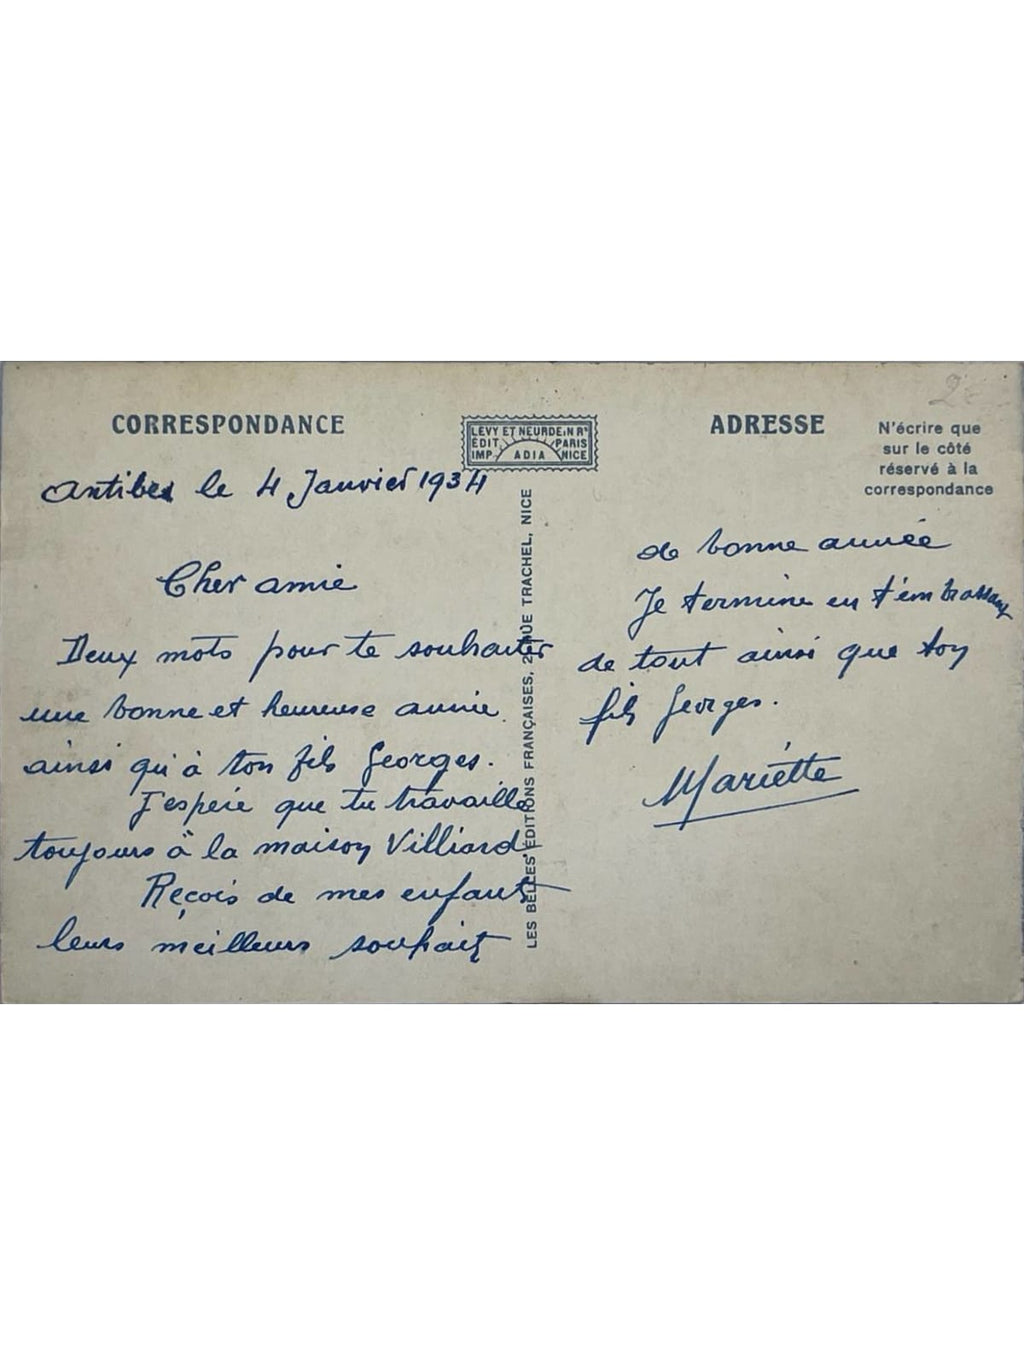 CORRESPONDANCE
LEVY ET NEURDEIN Rs
ÉDIT. PARIS
IMP. ADIA NICE
ADRESSE
N'écrire que
sur le côté
réservé à la
correspondance
Antibes le 4 Janvier 1934
Cher amie
Deux mots pour te souhaiter
une bonne et heureuse année
ainsi qu'à ton fils Georges.
J'espère que tu travaille
toujours à la maison Villiard
Reçois de mes enfants
leurs meilleurs souhait
LES BELLES ÉDITIONS FRANÇAISES, RUE TRACHEL, NICE
de bonne année
Je termine en t'embrassant
de tout ainsi que ton
fils Georges.
Mariétte